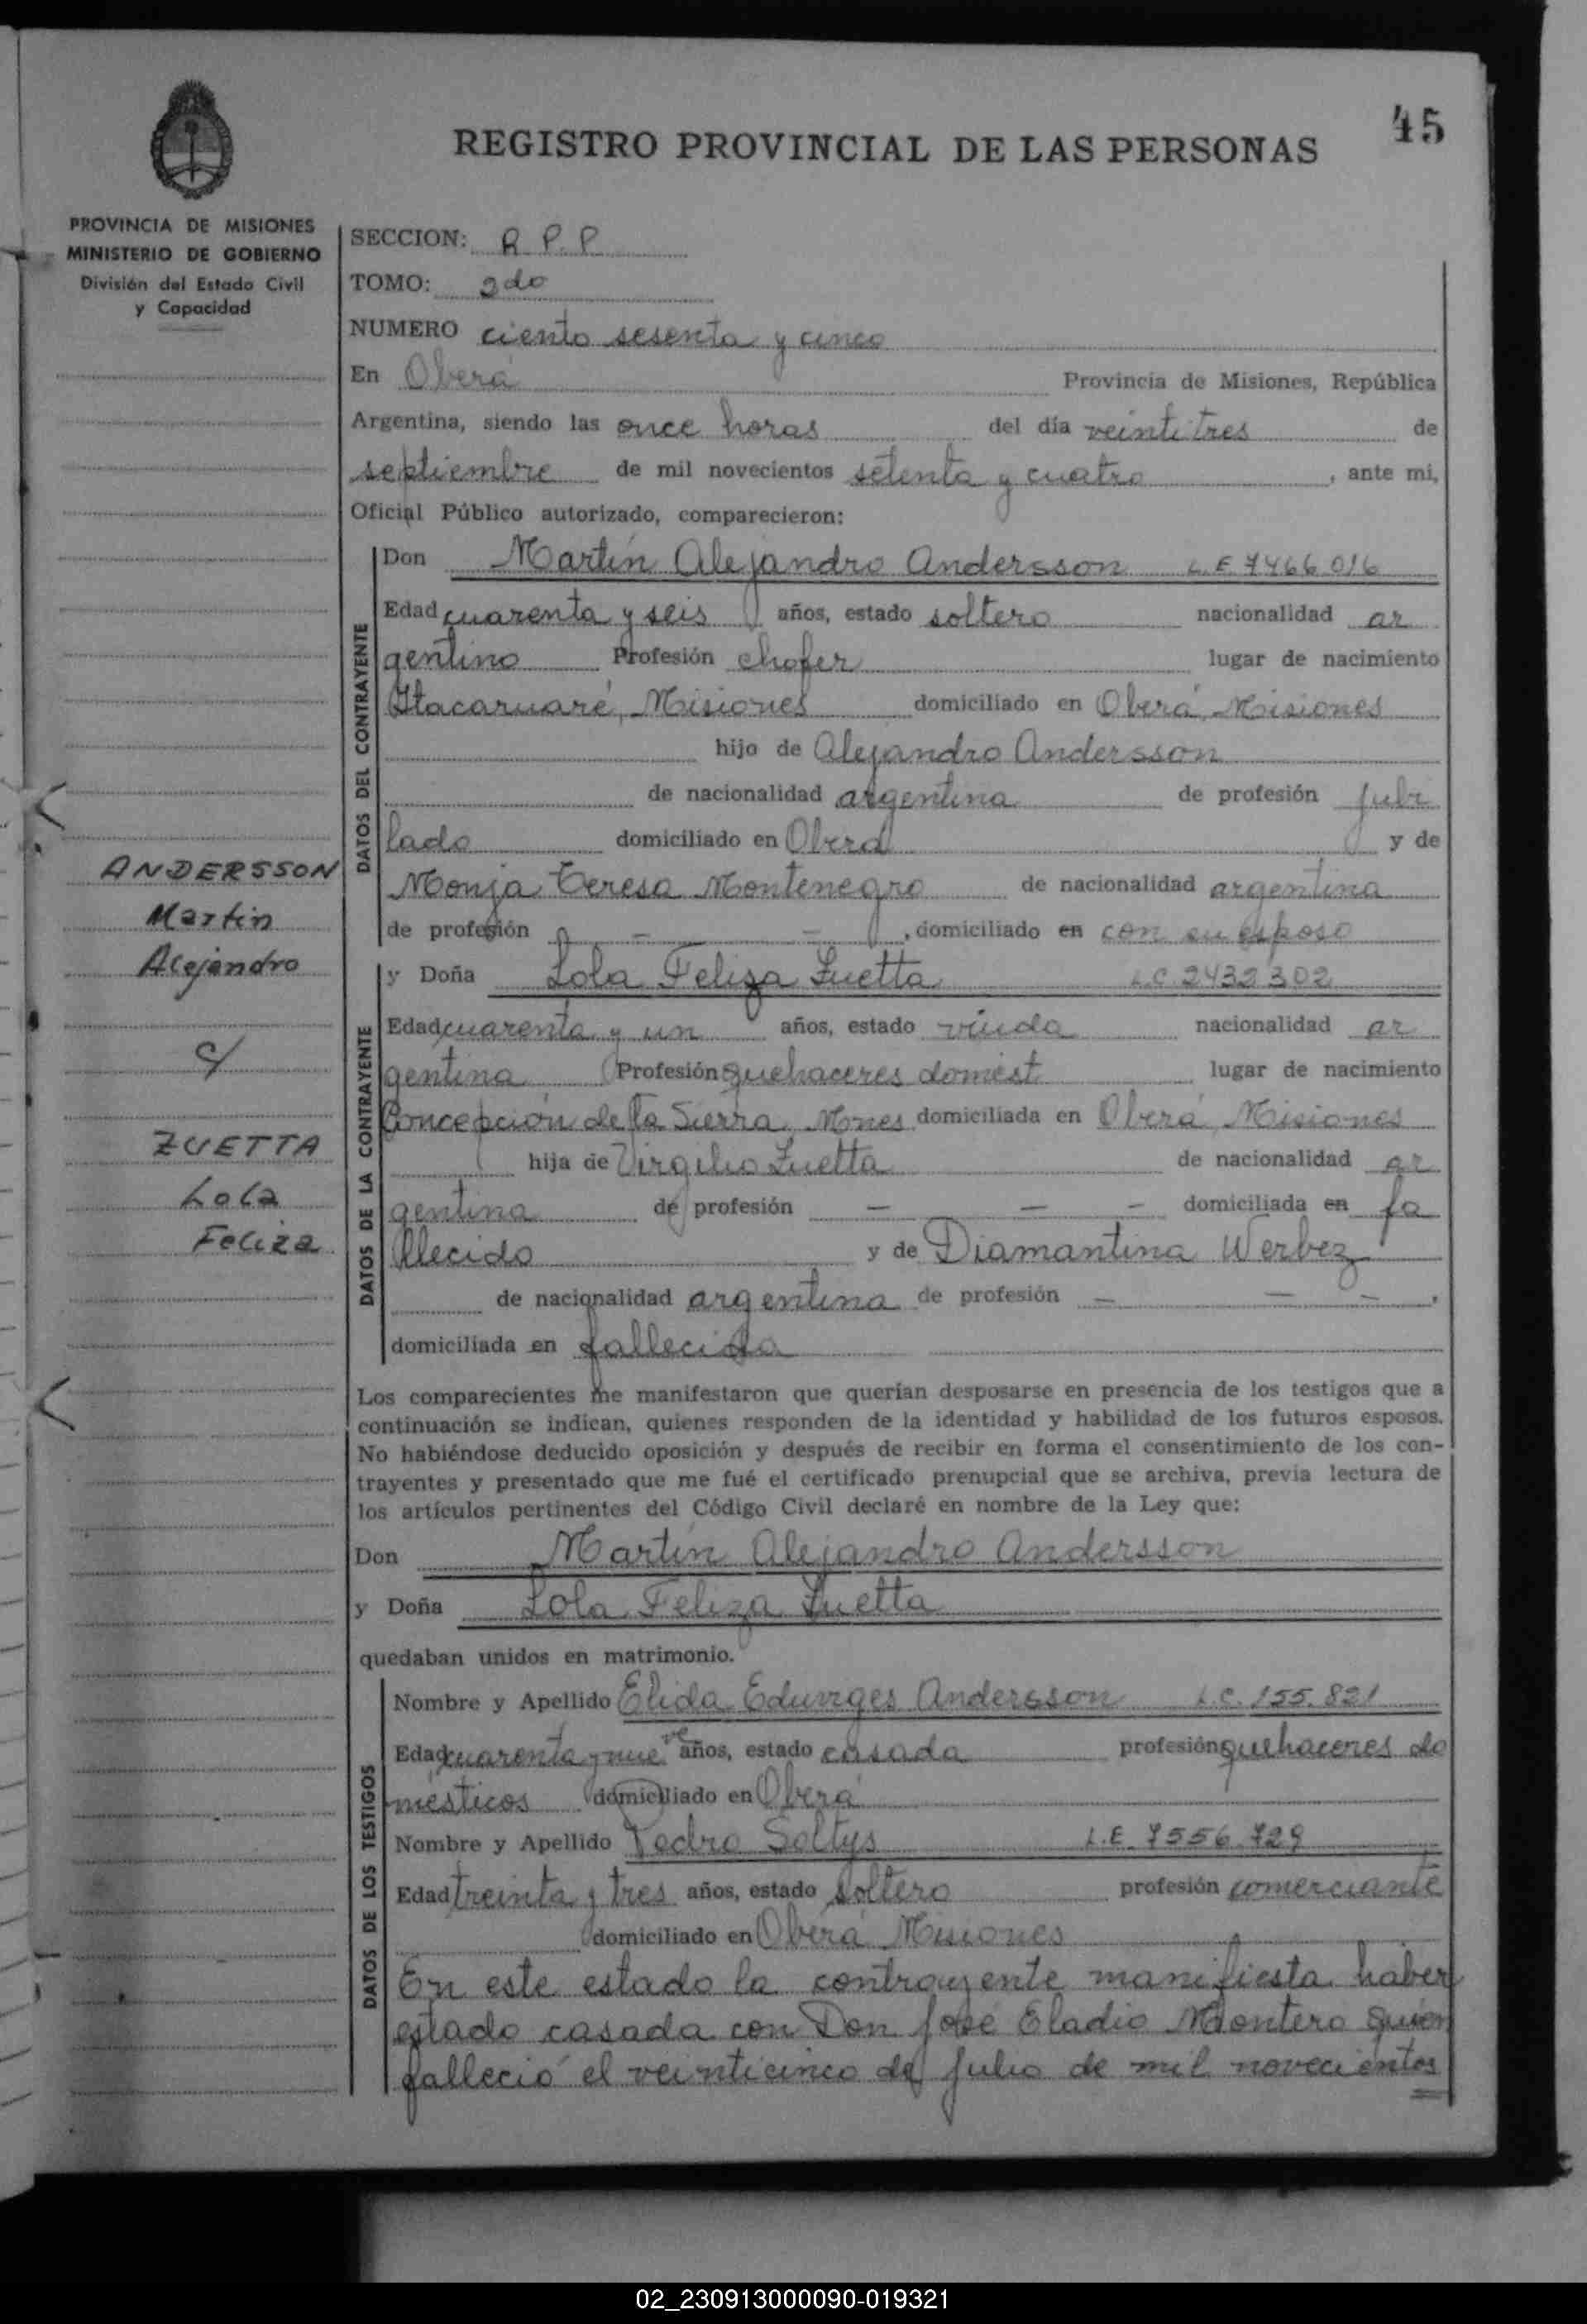 45
REGISTRO PROVINCIAL DE LAS PERSONAS
PROVINCIA DE MISIONES
MINISTERIO DE GOBIERNO
División del Estado Civil
y Capacidad
SECCION: R P. P
TOMO: 2do
NUMERO ciento sesenta y cinco
En Oberá Provincia de Misiones, República
Argentina, siendo las once horas del día veintitres de
septiembre de mil novecientos setenta y cuatro, ante mi,
Oficial Público autorizado, comparecieron:
DATOS DEL CONTRAYENTE
Don Martín Alejandro Andersson L.E 7466.016
Edad cuarenta y seis años, estado soltero nacionalidad ar
gentino Profesión chofer lugar de nacimiento
Itacaruaré, Misiones domiciliado en Oberá, Misiones
hijo de Alejandro Andersson
de nacionalidad argentina de profesión jubi
lado domiciliado en Oberá y de
Monja Teresa Montenegro de nacionalidad argentina
de profesión - - , domiciliado en con su esposo
ANDERSSON
Martin
Alejandro
c/
ZUETTA
Lola
Feliza
DATOS DE LA CONTRAYENTE
y Doña Lola Feliza Zuetta L.C. 2432302
Edad cuarenta y un años, estado viuda nacionalidad ar
gentina Profesión quehaceres domést lugar de nacimiento
Concepción de la Sierra, Mnes domiciliada en Oberá, Misiones
hija de Virgilio Zuetta de nacionalidad ar
gentina de profesión - - - domiciliada en fa
llecido y de Diamantina Werbez
de nacionalidad argentina de profesión - - - ,
domiciliada en fallecida
Los comparecientes me manifestaron que querían desposarse en presencia de los testigos que a
continuación se indican, quienes responden de la identidad y habilidad de los futuros esposos.
No habiéndose deducido oposición y después de recibir en forma el consentimiento de los con-
trayentes y presentado que me fué el certificado prenupcial que se archiva, previa lectura de
los artículos pertinentes del Código Civil declaré en nombre de la Ley que:
Don Martín Alejandro Andersson
y Doña Lola Feliza Zuetta
quedaban unidos en matrimonio.
DATOS DE LOS TESTIGOS
Nombre y Apellido Elida Eduviges Andersson L.C. 155.821
Edad cuarenta y nueve años, estado casada profesión quehaceres do
mésticos domiciliado en Oberá
Nombre y Apellido Pedro Soltys L.E. 7556.729
Edad treinta y tres años, estado soltero profesión comerciante
domiciliado en Oberá Misiones
En este estado la contrayente manifiesta haber
estado casada con Don José Eladio Montero quien
falleció el veinticinco de Julio de mil novecientos
02_230913000090-019321